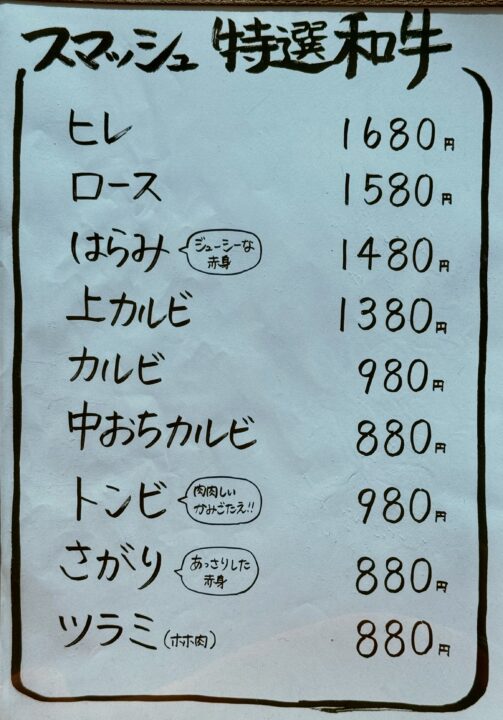 スマッシュ 特選和牛
ヒレ 1680円
ロース 1580円
はらみ ジューシーな 赤身 1480円
上カルビ 1380円
カルビ 980円
中おちカルビ 880円
トンビ 肉肉しい かみごたえ!! 980円
さがり あっさりした 赤身 880円
ツラミ(ホホ肉) 880円